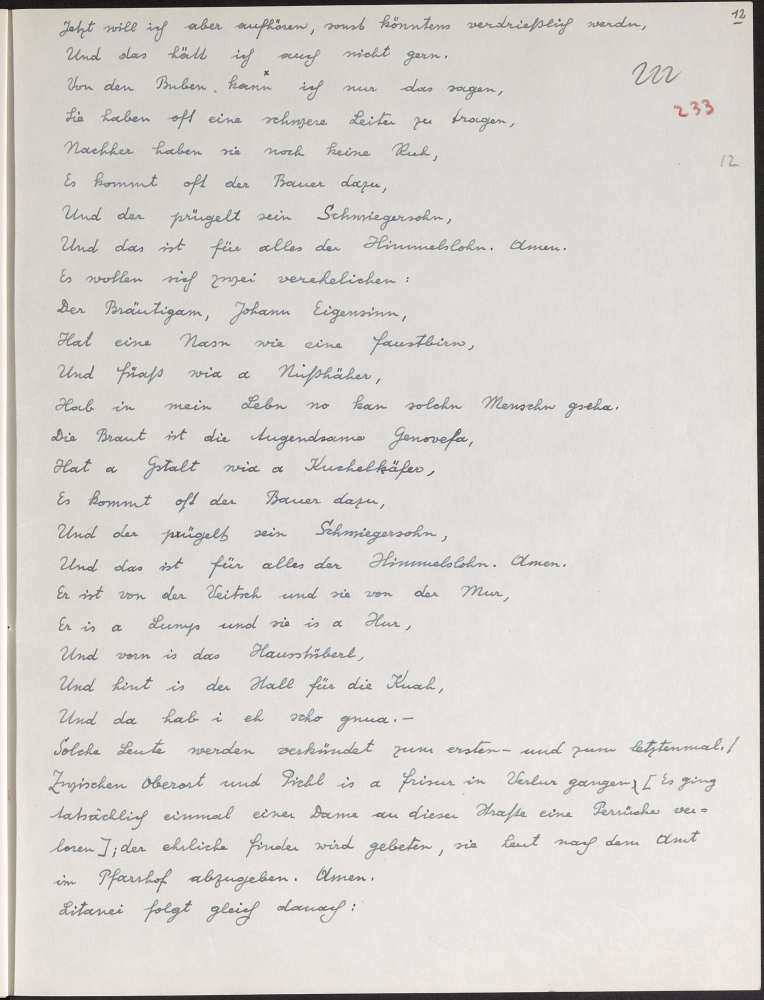 12
Jetzt will ich aber aufhören, sonst könntens verdrießlich werdn,
Und das hätt ich auch nicht gern.
Von den Buben kann ich nur das sagen,
222
Sie haben oft eine schwere Leiter zu tragen,
233
Nachher haben sie noch keine Ruh,
12
Es kommt oft der Bauer dazu,
Und der prügelt sein Schwiegersohn,
Und das ist für alles der Himmelslohn. Amen.
Es wollen sich zwei verehelichen:
Der Bräutigam, Johann Eigensinn,
Hat eine Nasn wie eine Faustbirn,
Und Füaß wia a Nußhäher,
Hab in mein Lebn no kan solchn Menschn gseha.
Die Braut ist die tugendsame Genovefa,
Hat a Gstalt wia a Kuchelkäfer,
Es kommt oft der Bauer dazu,
Und der prügelt sein Schwiegersohn,
Und das ist für alles der Himmelslohn. Amen.
Er ist von der Veitsch und sie von der Mur,
Er is a Lump und sie is a Hur,
Und vorn is das Hausstüberl,
Und hint is der Stall für die Kuah,
Und da hab i eh scho gnua.-
Solche Leute werden verkündet zum ersten- und zum letztenmal./
Zwischen Oberort und Pichl is a Frisur in Verlur gangen [Es ging
tatsächlich einmal einer Dame an dieser Straße eine Perrücke ver=
loren]; der ehrliche Finder wird gebeten, sie heut nach dem Amt
im Pfarrhof abzugeben. Amen.
Litanei folgt gleich danach: